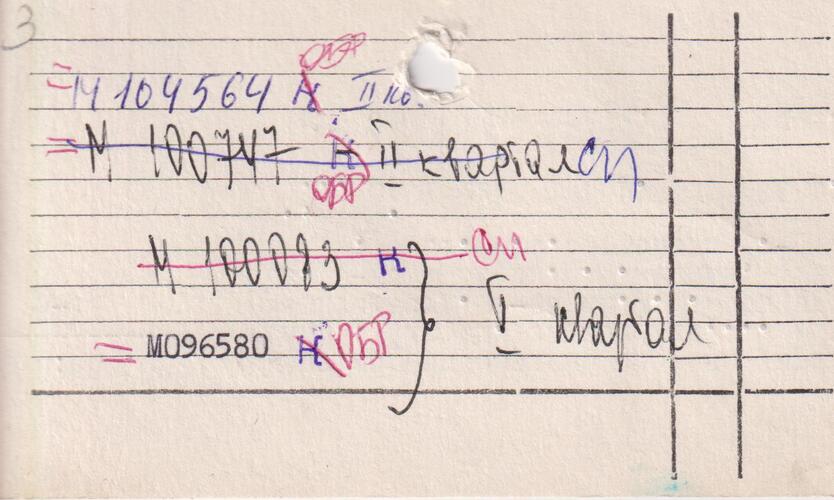 3
ОБР
= М 104564 К II кв.
= М 100747 Н II квартал СП
ОБР
М 100093 К СП
I квартал
= М096580 Н ОБР